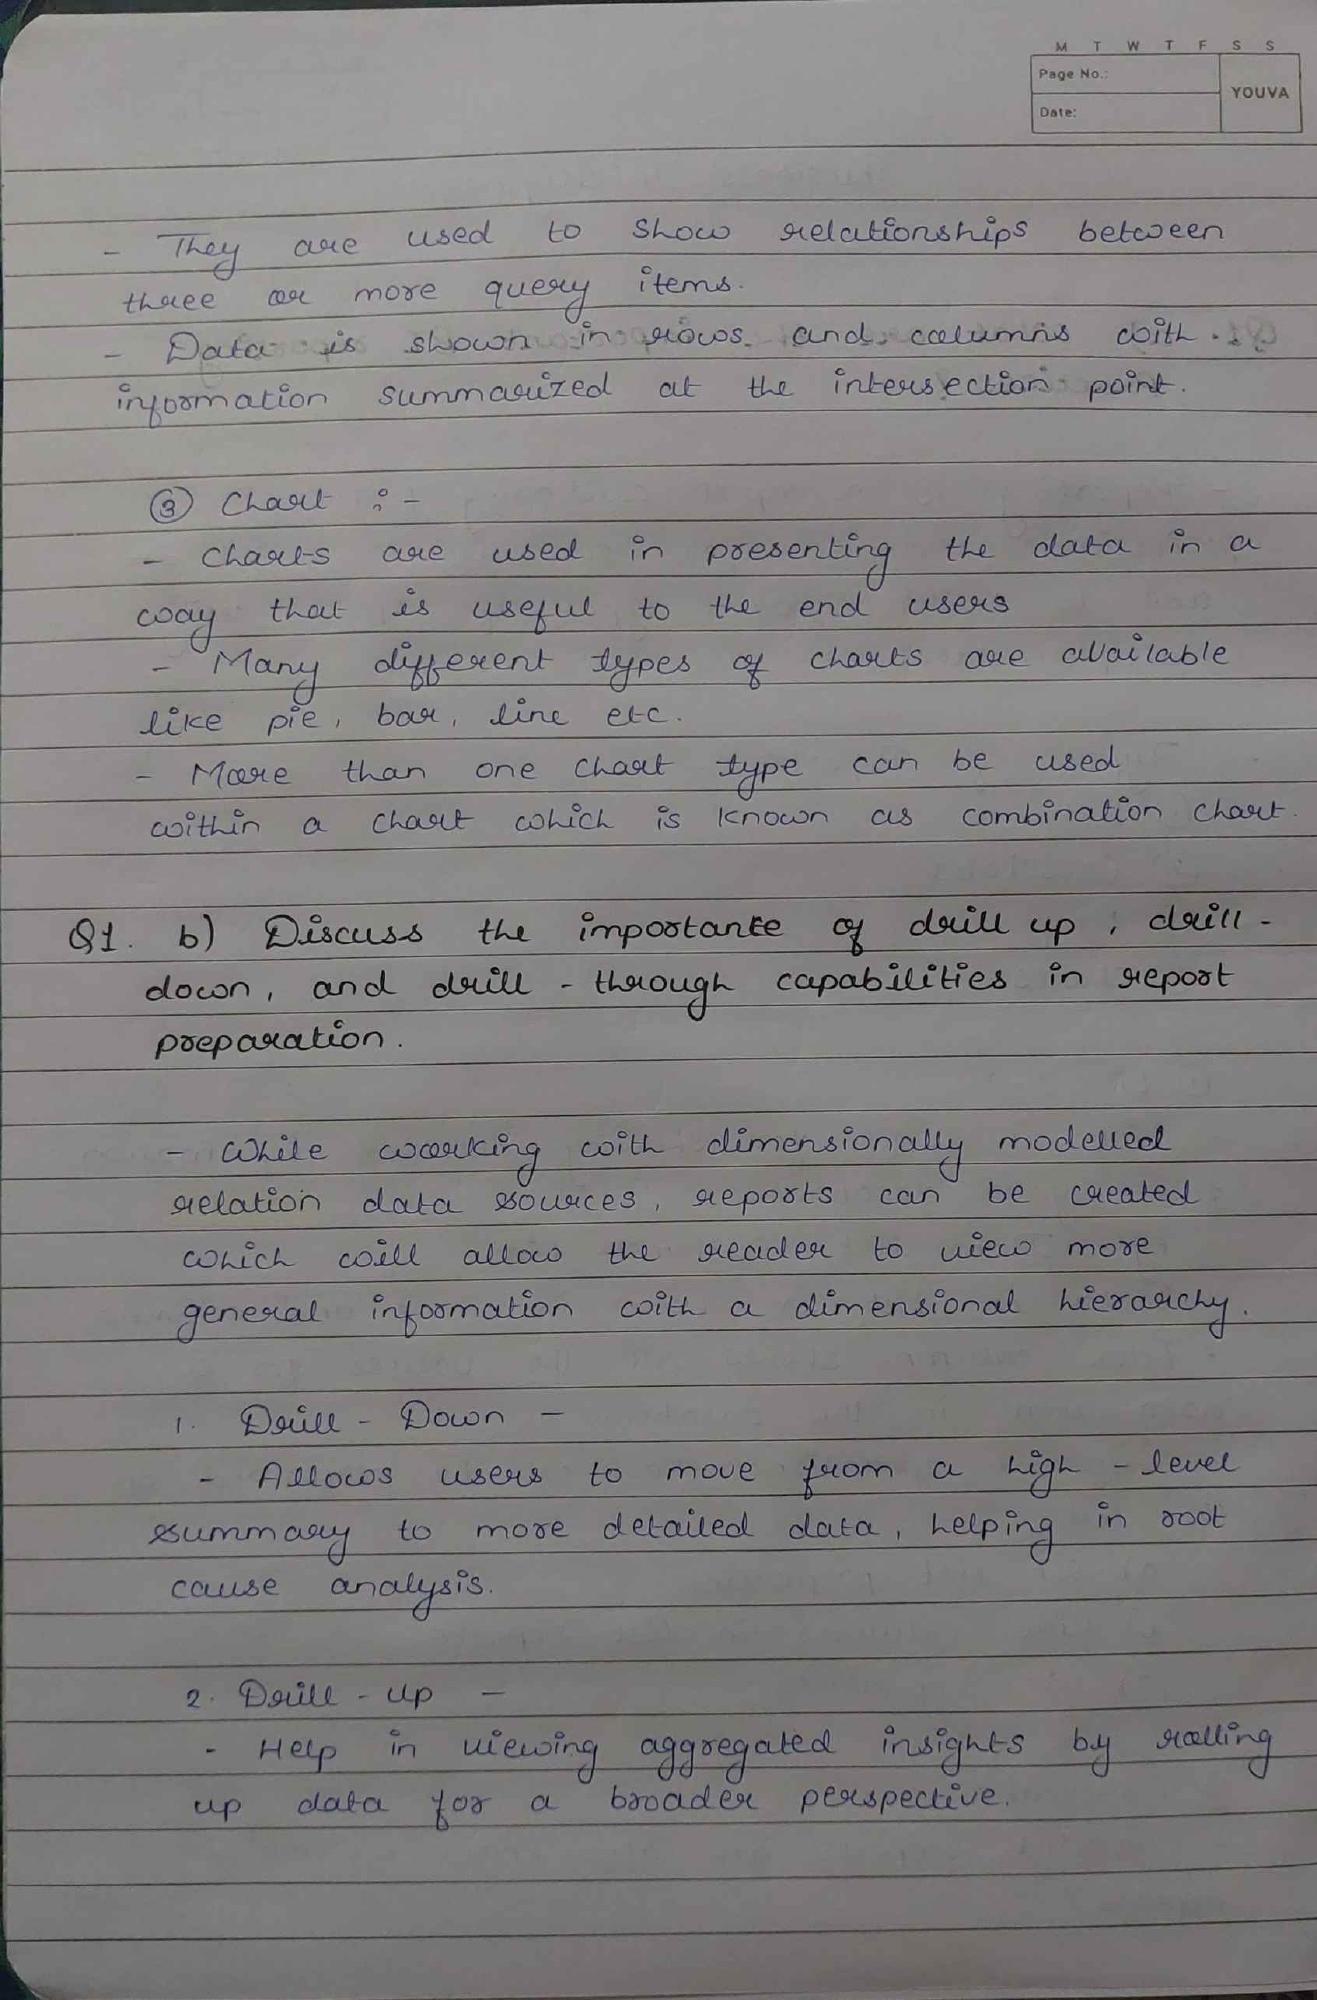 M T W T F S S
Page No.:
YOUVA
Date:
- They are used to show relationships between
three or more query items.
- Data is shown in rows and columns with
information summarized at the intersection point.
③ Chart :-
- Charts are used in presenting the data in a
way that is useful to the end users
- Many different types of charts are available
like pie, bar, line etc.
- More than one chart type can be used
within a chart which is known as combination chart.
Q1. b) Discuss the importante of drill up, drill-
down, and drill-through capabilities in report
preparation.
- While working with dimensionally modelled
relation data sources, reports can be created
which will allow the reader to view more
general information with a dimensional hierarchy.
1. Drill-Down -
- Allows users to move from a high-level
summary to more detailed data, helping in root
cause analysis.
2. Drill-up -
- Help in viewing aggregated insights by rolling
up data for a broader perspective.